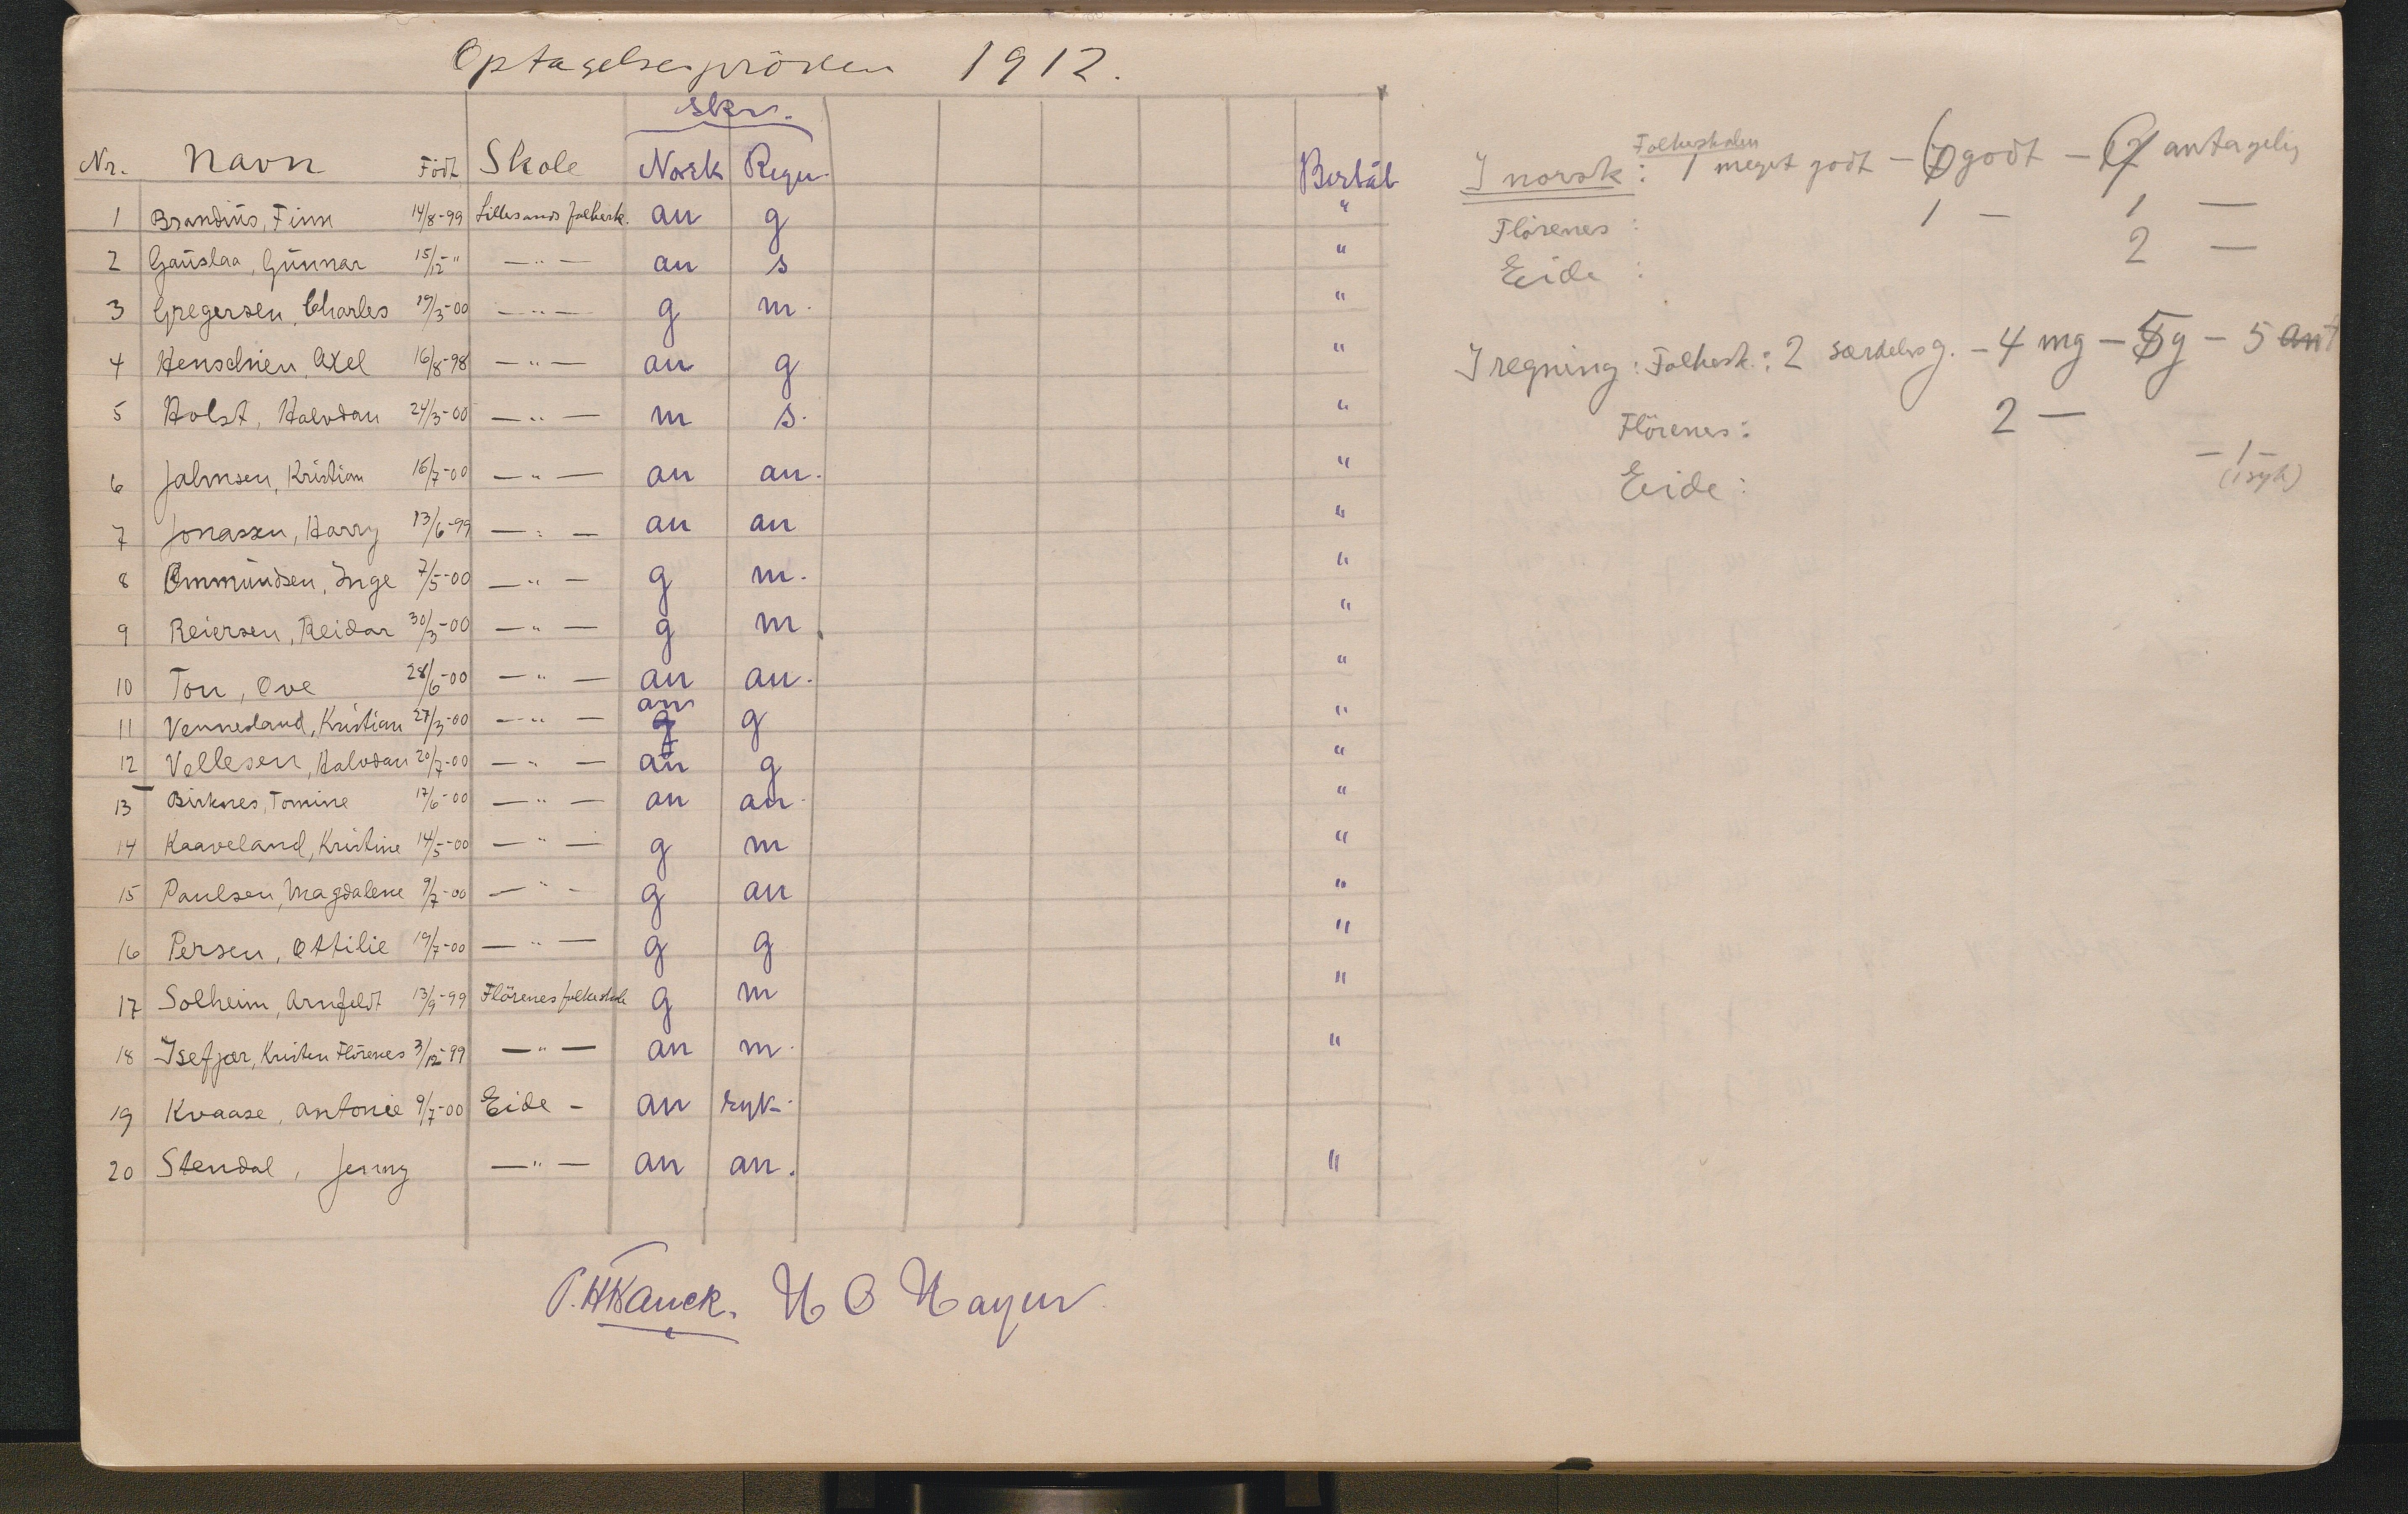 Optagelsespröven 1912.
skr.
Nr. Navn Födt Skole Norsk Regn. Bestaat
1 Brandius, Finn 14/8-99 Lillesands folkesk. an g "
2 Gauslaa, Gunnar 15/12-" —"— an s "
3 Gregersen, Charles 19/3-00 —"— g m. "
4 Henschien, Axel 16/8-98 —"— an g "
5 Holst, Halvdan 24/3-00 —"— m s. "
6 Jahnsen, Kristian 16/7-00 —"— an an. "
7 Jonassen, Harry 13/6-99 —"— an an "
8 Ommundsen, Inge 7/5-00 —"— g m. "
9 Reiersen, Reidar 30/3-00 —"— g m. "
10 Tou, Ove 28/6-00 —"— an an. "
11 Vennesland, Kristian 27/3-00 —"— an g g "
12 Vellesen, Halvdan 20/7-00 —"— an g "
13 Birknes, Tomine 17/6-00 —"— an an. "
14 Kaaveland, Kristine 14/5-00 —"— g m "
15 Paulsen, Magdalene 9/7-00 —"— g an "
16 Persen, Ottilie 19/7-00 —"— g g "
17 Solheim, Arnfeldt 13/9-99 Flörenes folkeskole g m "
18 Isefjær, Kristen Flörenes 3/12-99 —"— an m. "
19 Kvaase, Antonie 9/7-00 Eide - an syk.
20 Stendal, Jenny —"— an an. "
P. H. Hauck. N O Hayer
Folkeskolen
I norsk: 1 meget godt — 6 godt — 9 antagelig
Flörenes: 1 — 1 —
Eide: 2 —
I regning: Folkesk.: 2 særdeles g. — 4 mg — 5 g — 5 ant
Flörenes: 2 —
Eide: — 1 —
(1 syk)